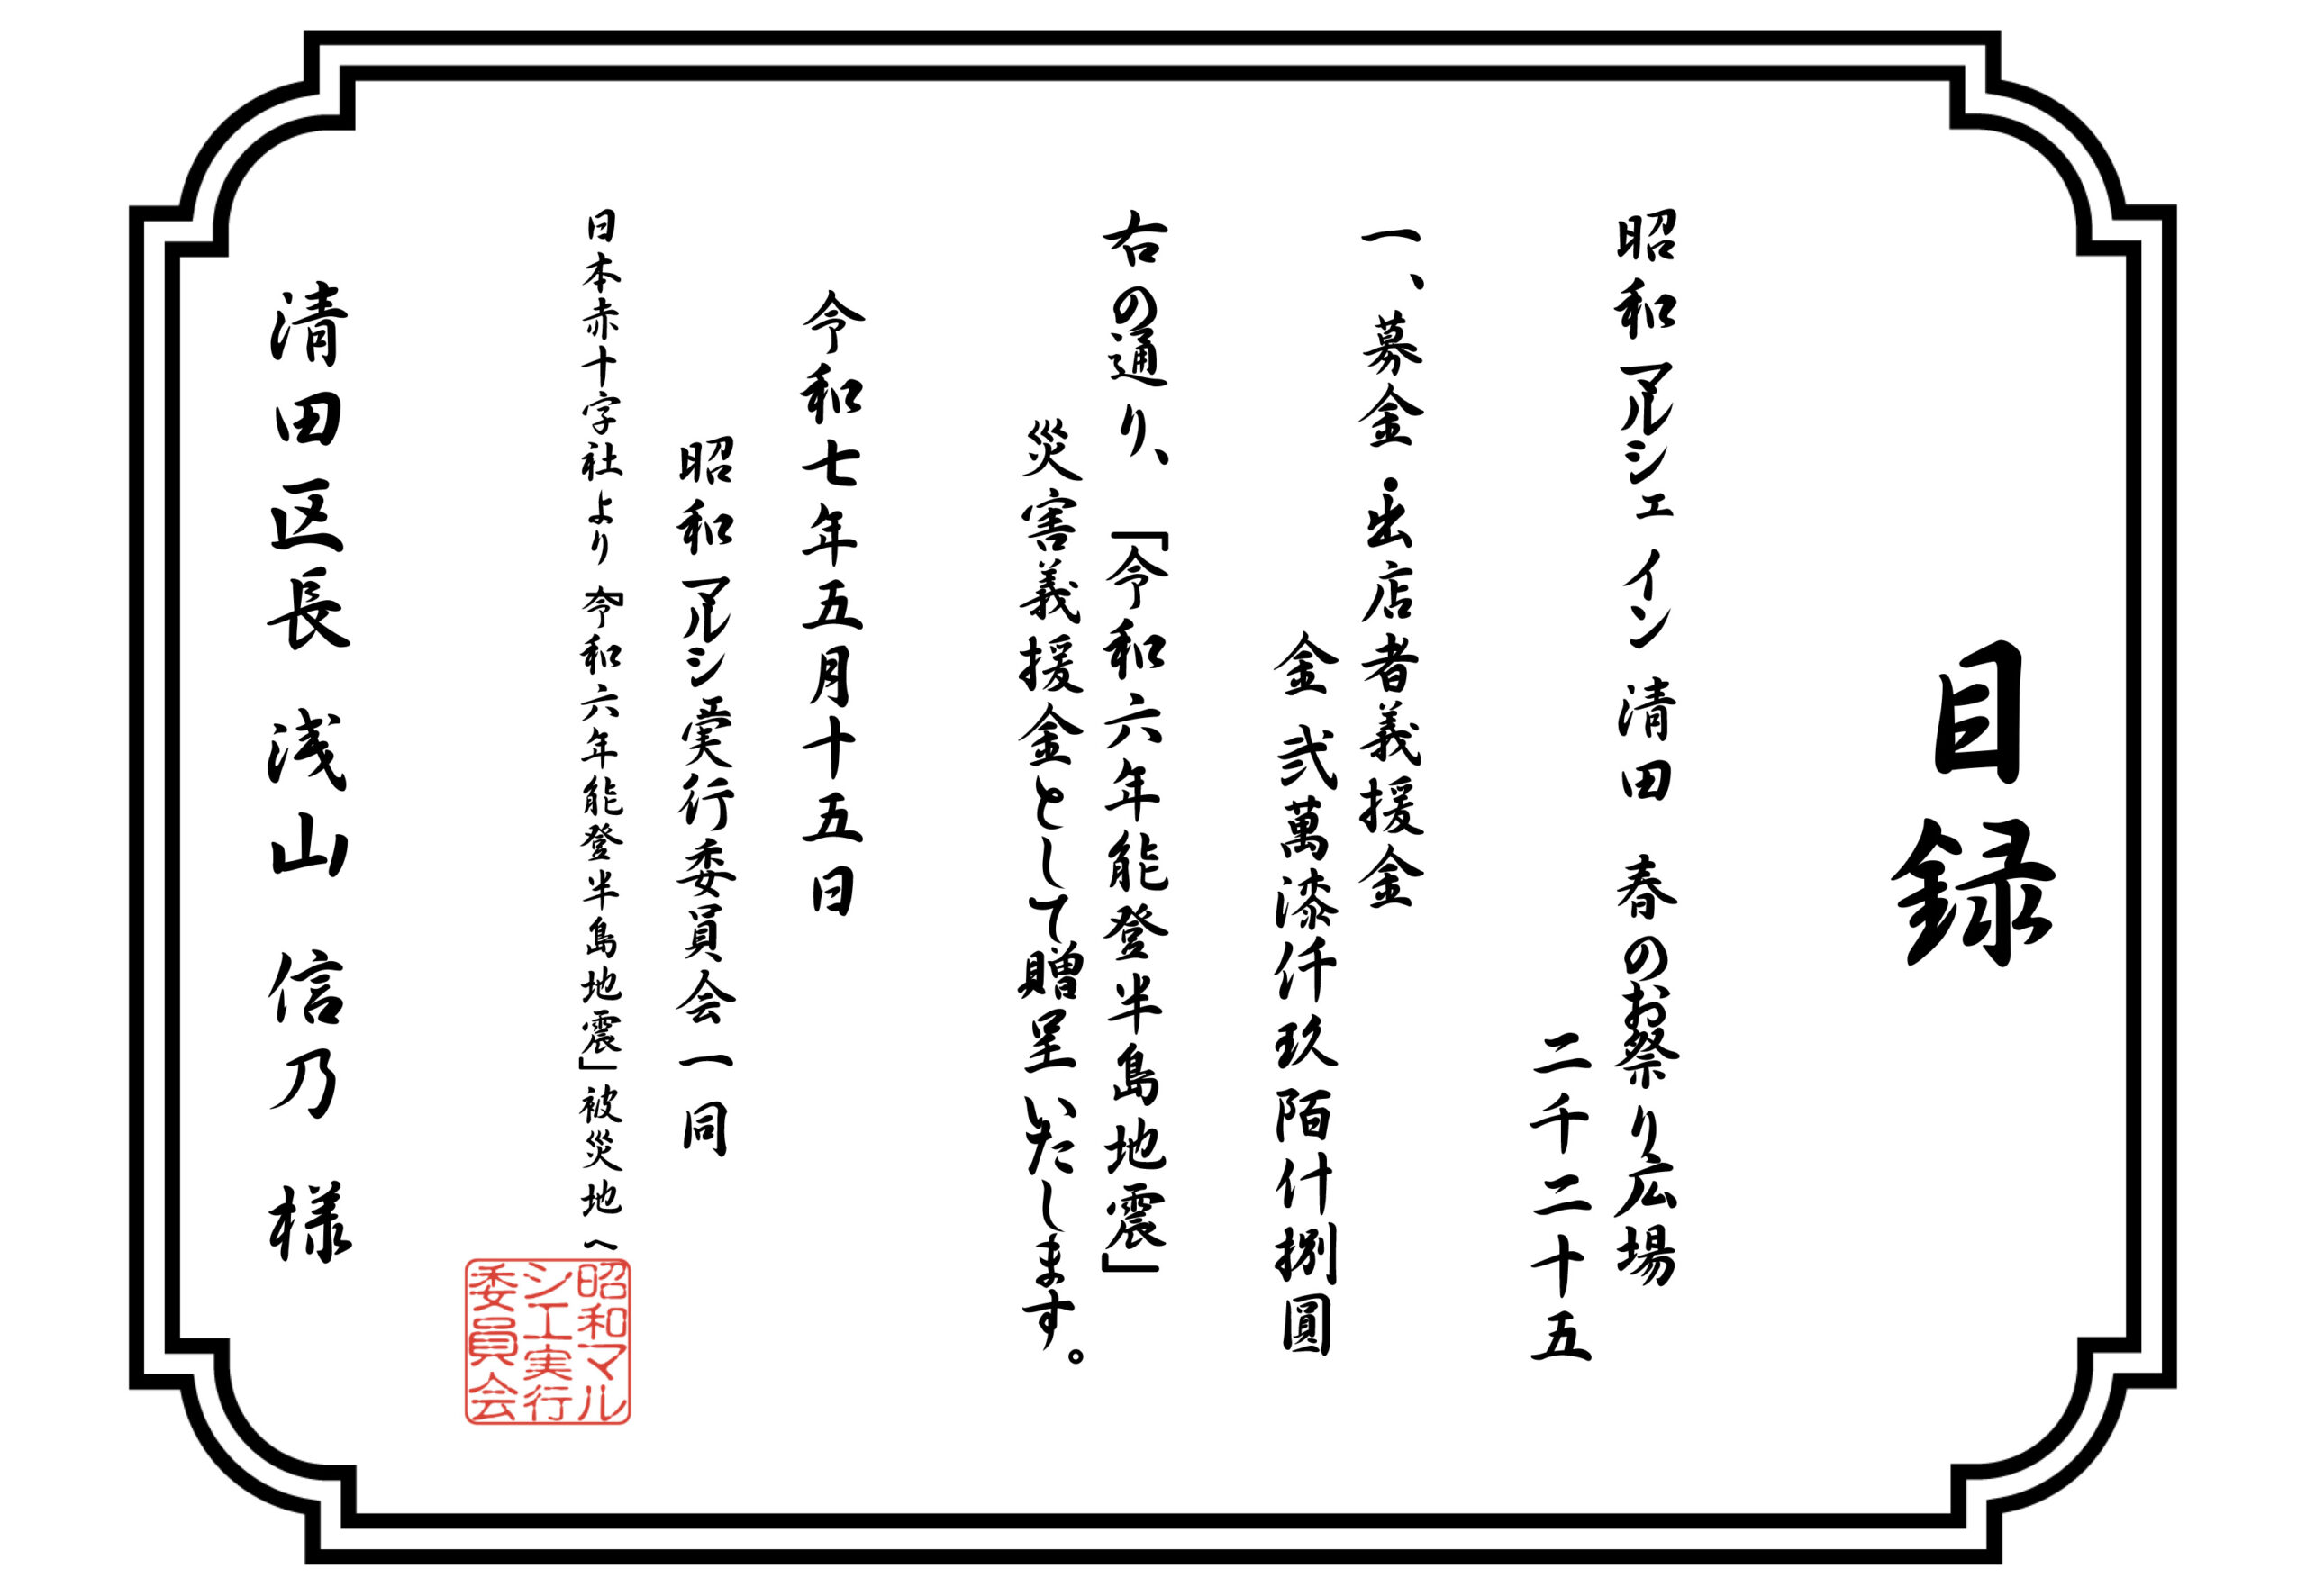 目録
昭和マルシェ イン 清田 春のお祭り広場
二千二十五
一、募金・出店者義援金
金 弐萬漆仟玖陌什捌圓
右の通り、「令和六年能登半島地震」
災害義援金として贈呈いたします。
令和七年五月十五日
昭和マルシェ実行委員会一同
日本赤十字社より「令和六年能登半島地震」被災地へ
清田区長 浅山 信乃 様
昭和マル
シエ実行
委員会